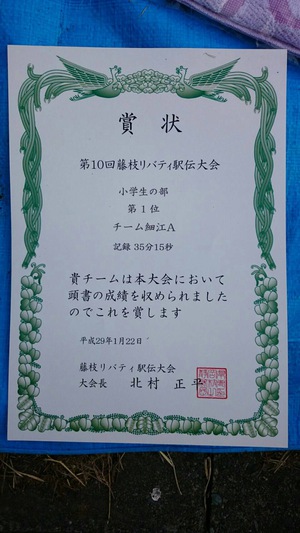 賞 状
第10回藤枝リバティ駅伝大会
小学生の部
第１位
チーム細江Ａ
記録 35分15秒
貴チームは本大会において
頭書の成績を収められました
のでこれを賞します
平成29年1月22日
藤枝リバティ駅伝大会
大会長 北村 正平